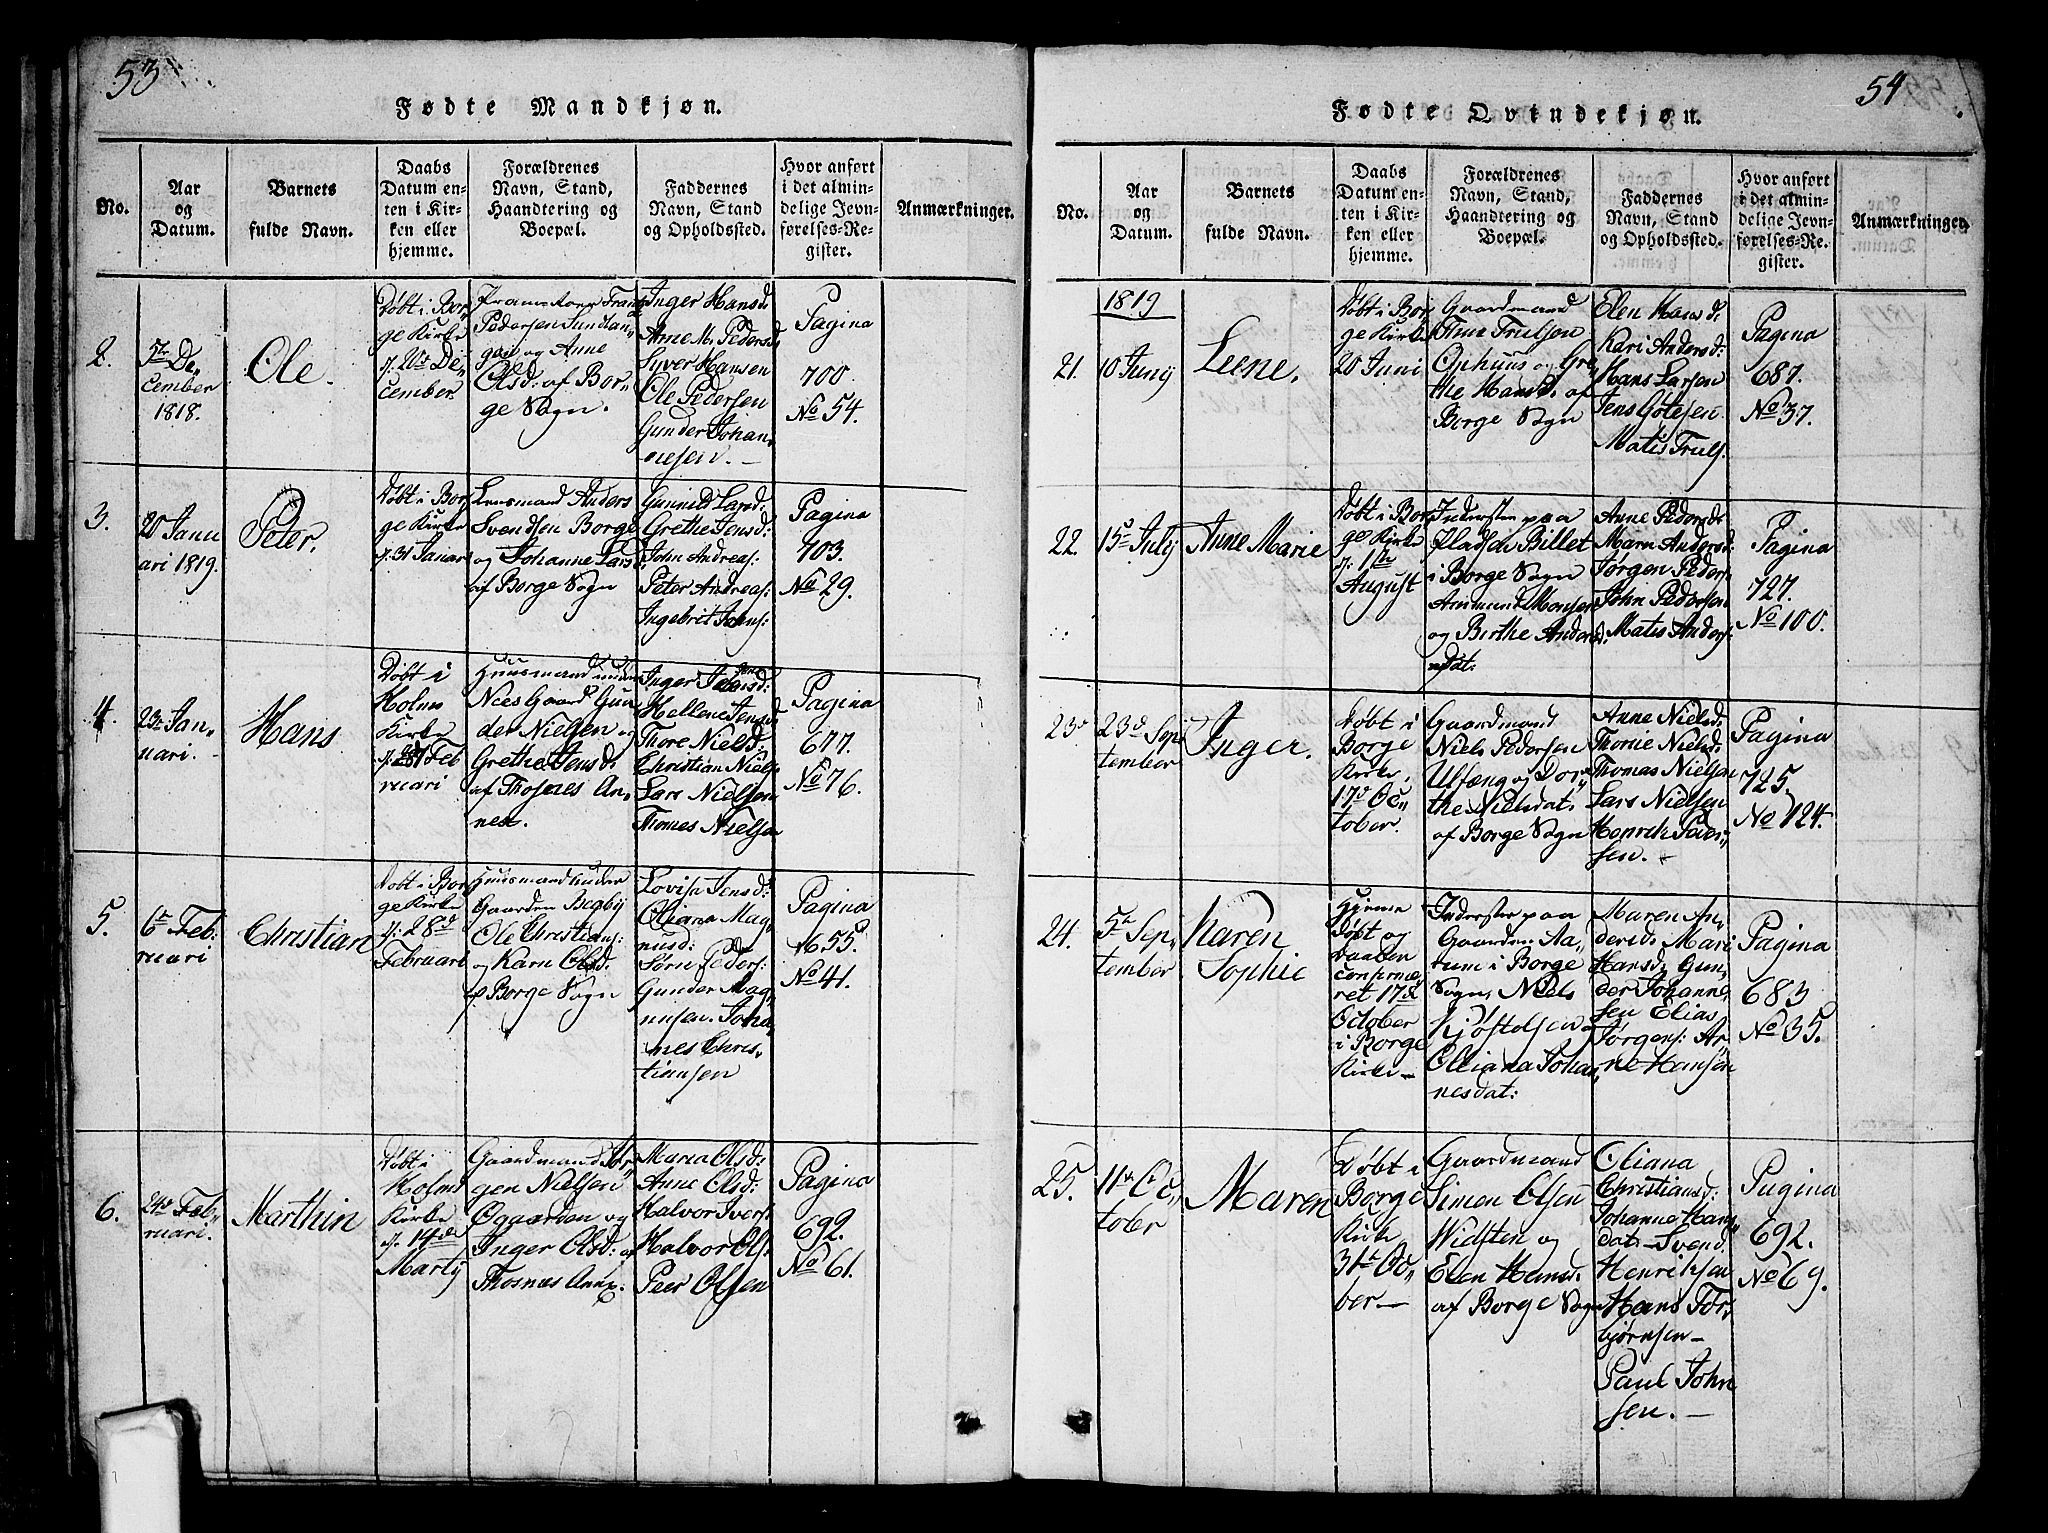 53
Fødte Mandkjøn.
No.
Aar
og
Datum.
Barnets
fulde Navn.
Daabs
Datum en-
ten i Kir-
ken eller
hjemme.
Forældrenes
Navn, Stand,
Haandtering og
Boepæl.
Faddernes
Navn, Stand
og Opholdssted.
Hvor anført
i det almin-
delige Jevn-
førelses-Re-
gister.
Anmærkninger.
2.
5te De,,
cember
1818.
Ole.
Døbt i Bor,,
ge Kirke
d: 20de De,,
cember.
Pedersen
og Anne
Olsd: af Bor,,
ge Sogn.
Inger Hansd:
Anne M. Pedersd:
Syver Hansen
Ole Pedersen
Gunder Johan,,
nesen. —
Pagina
700.
No 54.
3.
20 Janu
ari 1819.
Peter.
Døbt i Bor,,
ge Kirke
d: 31 Januar
Lensmand Anders
Svendsen Borge
og Johanne Larsd:
af Borge Sogn
Gunnild Larsd:
Grethe Jensd:
John Andreas:
Peter Andreas:
Ingebrit Johns:
Pagina
703.
No 29.
4.
23de Jan,,
uari.
Hans
Døbt i
Holms
Kirke
Feb
ruari
Huusmand under
Nees Gaard Gun
der Nielsen og
Grethe Jensd:
af Thosnes An,,
nex.
Inger Jensd:
Hellene Jensd:
Thore Nielsd:
Christian Niels:
Lars Nielsen
Thomes Nielsen
Pagina
677.
No 76.
5.
6te Feb:
ruari
Christian
Døbt i Bor,,
ge Kirke
d: 28de
Februari
Huusmand under
Gaarden Begby
Ole Christians:
og Karn Olsd:
af Borge Sogn
Lovisa Jensd:
Oliana Mag,,
nusd:
Sørn Peders:
Gunder Mag,,
nusen. Joha,,
nes Chris,,
tiansen
Pagina
655.
No 41.
6.
24de Feb,,
ruari.
Marthin
Døbt i
Holms
Kirke
d. 14de
Martj
Gaardmand Jør,,
gen Nielsen
Øgaarden og
Inger Olsd: af
Thosnæs Annex.
Maria Olsd:
Anne Olsd:
Halvor Ivers:
Halvor Ols:
Peer Olsen
Pagina
692.
No 61.
54
Fødte Qvindekjøn.
No.
Aar
og
Datum.
Barnets
fulde Navn.
Daabs
Datum en-
ten i Kir-
ken eller
hjemme.
Forældrenes
Navn, Stand,
Haandtering og
Boepæl.
Faddernes
Navn, Stand
og Opholdssted.
Hvor anført
i det almin-
delige Jevn-
førelses-Re-
gister.
Anmærkninger.
1819
21.
10 Junij
Leene.
Døbt i Bor
ge Kirke
20 Juni
Gaardmand
Trulsen
Ophuus og Gre,,
the Hansd: af
Borge Sogn
Elen Hansd:
Kari Andersd:
Hans Larsen
Jens Götesen.
Matis Truls.
Pagina
687.
No 37.
22
15de Julij
Anne Marie
Døbt i Bor
ge Kirke
d: 1ste
August
Inderster paa
Pladsen Billet
i Borge Sogn
Ammund Monsen
og Birthe Anders
dat:
Anne Pedersd:
Maren Andersd:
Jørgen Peders:
John Pedersen
Matis Anders:
Pagina
727.
No 100.
23de
23de Sep
tember
Inger.
Døbt i
Borge
Kirke,
17de Oc,,
tober.
Gaardmand
Niels Pedersen
Ulfæng og Dor,,
the Nielsdat:
af Borge Sogn
Anne Nielsd:
Thorie Nielsd:
Thomas Nielsen
Lars Nielsen
Henrich Peder,,
sen. —
Pagina
725.
No 124.
24.
5te Sep,,
tember
Karen
Sophie
Hjemme
Døbt og
Daaben
confirme,,
ret 17de
October
i Borge
Kirke —
Inderster paa
Gaarden Aa,,
tum i Borge
Sogn, Niels
Kjøstelsen og
Oliana Johan,,
nesdat:
Maren An,,
dersd: Mari
Hansd: Gun,,
der Johanne,,
sen Elias
Jørgens: Ar,,
ne Hansen
Pagina
683
No 35.
25.
11te Oc,,
tober
Maren
Døbt i
Borge
Kirke
31te Oc,,
ber —
Gaardmand
Simen Olsen
Widsten og
Elen Hansd.
af Borge Sogn
Oliana
Christiansd:
Johanne Hans,,
dat — Svend
Henriksen
Hans Tor,,
bjørnsen —
Paul John
sen. —
Pagina
692.
No 69.